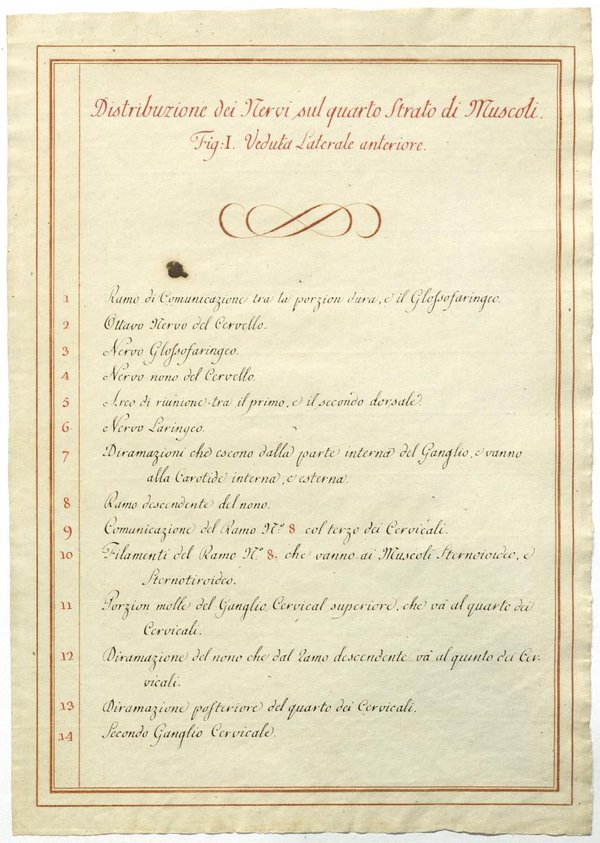 Distribuzione dei Nervi sul quarto Strato di Muscoli.
Fig: I. Veduta Laterale anteriore.
1 Ramo di Comunicazione tra la porzion dura, e il Glossofaringeo.
2 Ottavo Nervo del Cervello.
3 Nervo Glossofaringeo.
4 Nervo nono del Cervello.
5 Arco di riunione tra il primo, e il secondo dorsale.
6 Nervo Laringeo.
7 Diramazioni che escono dalla parte interna del Ganglio, e vanno
alla Carotide interna, e esterna.
8 Ramo descendente del nono.
9 Comunicazione del Ramo N.º 8 col terzo dei Cervicali.
10 Filamenti del Ramo N.º 8, che vanno ai Muscoli Sternoioideo, e
Sternotiroideo.
11 Porzion molle del Ganglio Cervical superiore, che và al quarto dei
Cervicali.
12 Diramazione del nono che dal Ramo descendente và al quinto dei Cer-
vicali.
13 Diramazione posteriore del quarto dei Cervicali.
14 Secondo Ganglio Cervicale.